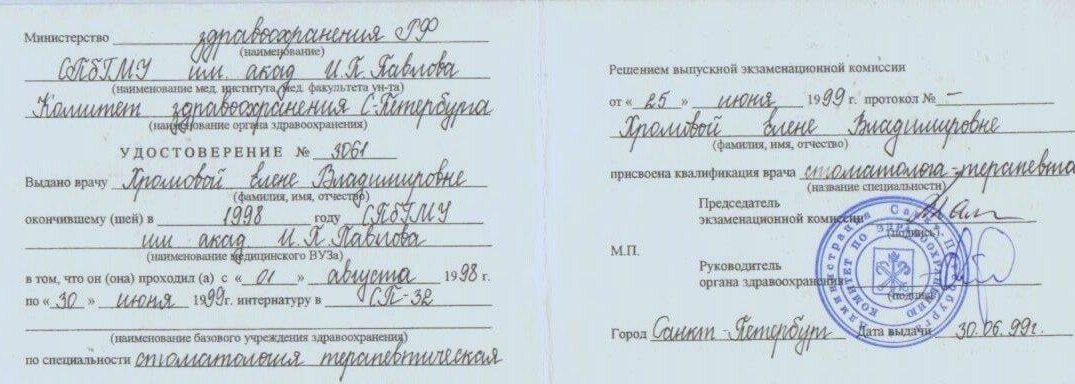 Министерство здравоохранения РФ
(наименование)
СПбГМУ им. акад И.П.Павлова
(наименование мед. института, мед. факультета ун-та)
Комитет здравоохранения С-Петербурга
(наименование органа здравоохранения)
УДОСТОВЕРЕНИЕ № 3061
Выдано врачу Хромовой Елене Владимировне
(фамилия, имя, отчество)
окончившему (шей) в 1998 году СПбГМУ
им акад И.П.Павлова
(наименование медицинского ВУЗа)
в том, что он (она) проходил (а) с « 01 » августа 1998 г.
по « 30 » июня 1999г. интернатуру в СП-32
(наименование базового учреждения здравоохранения)
по специальности стоматология терапевтическая
Решением выпускной экзаменационной комиссии
от « 25 » июня 1999 г. протокол № –
Хромовой Елене Владимировне
(фамилия, имя, отчество)
присвоена квалификация врача стоматолога-терапевта
(название специальности)
Председатель
экзаменационной комиссии
(подпись)
М.П.
Руководитель
органа здравоохранения
(подпись)
Город Санкт-Петербург Дата выдачи 30.06.99г.
Администрация Санкт-Петербурга
Комитет по здравоохранению